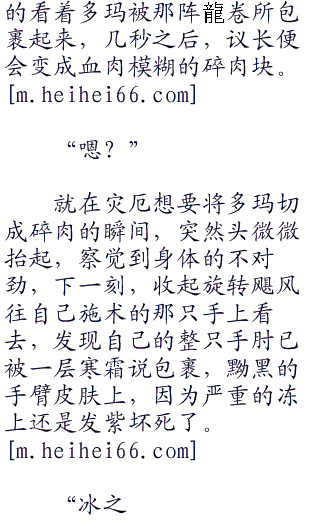 的看着多玛被那阵龍卷所包
裹起来，几秒之后，议长便
会变成血肉模糊的碎肉块。
[m.heihei66.com]
“嗯？”
就在灾厄想要将多玛切
成碎肉的瞬间，突然头微微
抬起，察觉到身体的不对
劲，下一刻，收起旋转飓风
往自己施术的那只手上看
去，发现自己的整只手肘已
被一层寒霜说包裹，黝黑的
手臂皮肤上，因为严重的冻
上还是发紫坏死了。
[m.heihei66.com]
“冰之